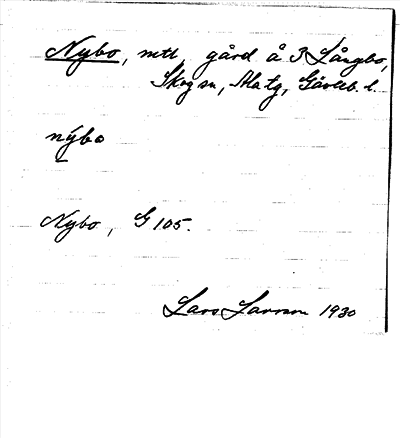 Nybo, mtl gård å 3 Långbo,
Skog sn, Ala tg, Gävleb. l.
nýbo
Nybo, G 105.
Lars Larsson 1930